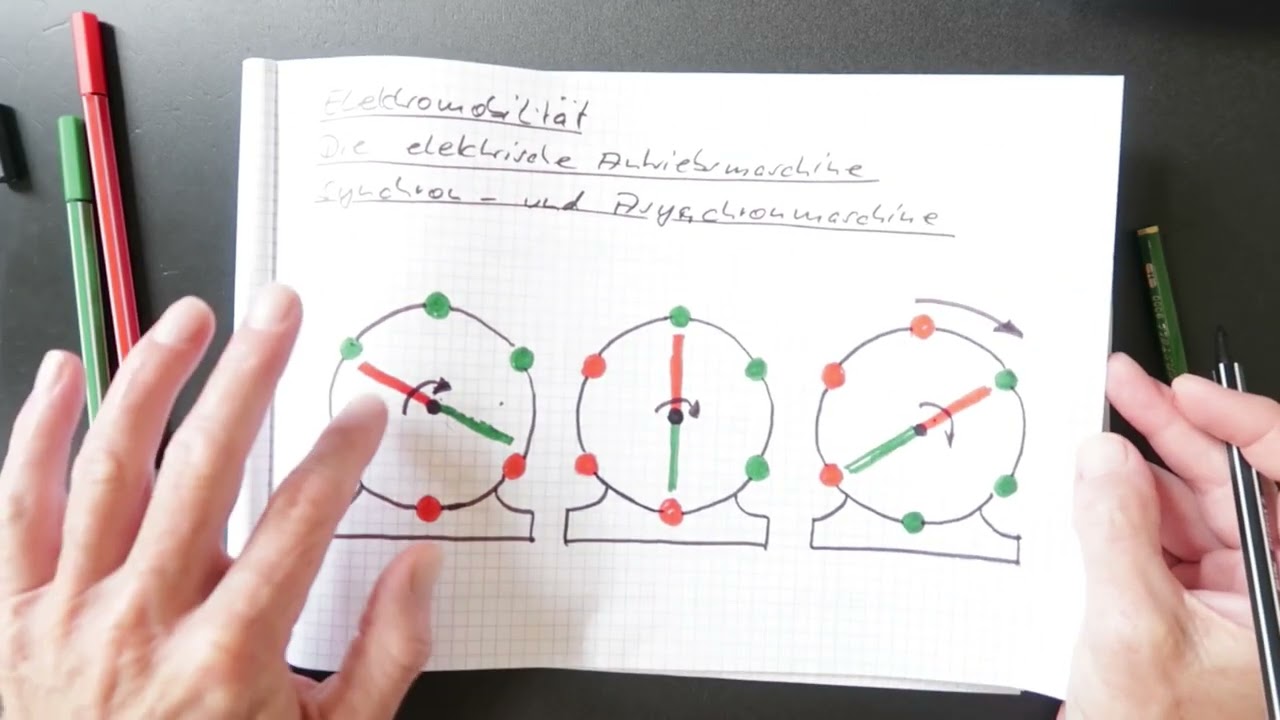 Elektromobilität
Die elektrische Antriebsmaschine
Synchron- und Asynchronmaschine